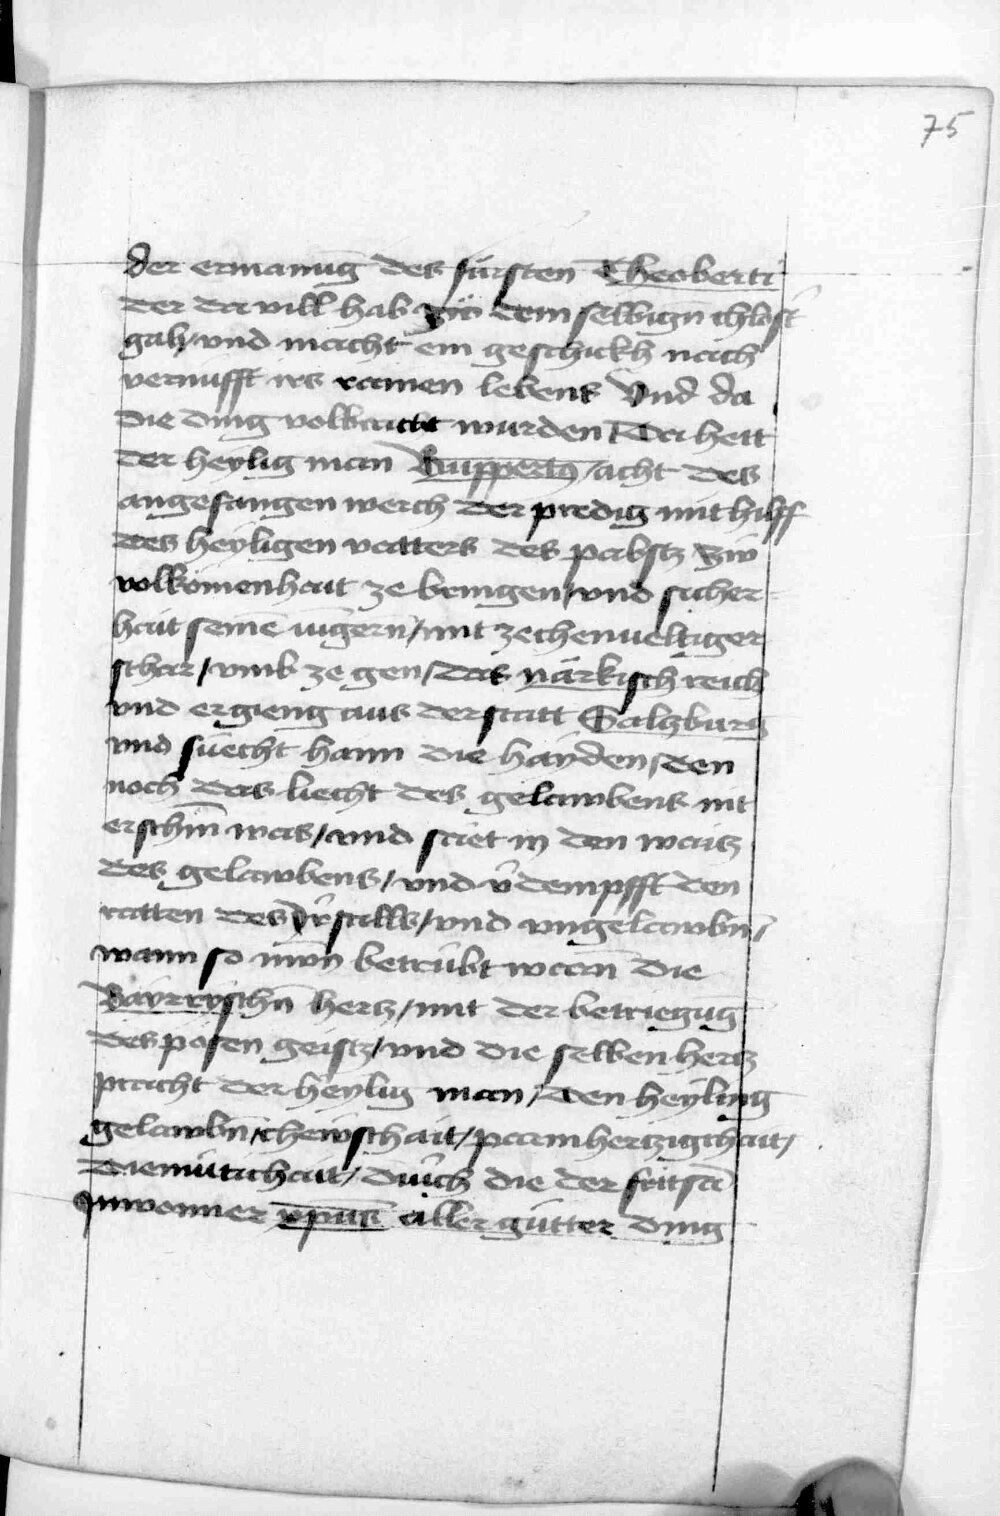 75
der ermanuḡ des fürsten Theoberti
der da vill hab zw̄ dem selbign̄ chlost̄
gab / vnd macht ein geschickh nach
vernufft irs rainen lebens Vnd da
die ding volbracht wurden Da hett
der heylig man Ruppertꝰ / acht des
angefangen werch der predig mit hilff
des heyligen vatters des pabstz zw
volkōmenhait ze bringen / vnd sicher-
hait seinē iūgern̄ / mit zechenueltiger
schar / vmb ze gen / das närkisch reich
vnd ergieng aus der statt Saltzburg
vnd suecht haim die hayden / den
noch das liecht des gelawbens nit
erschin̄ was / vnd säet in den waitz
des gelawbens / vnd v̄dempfft den
ratten des Irsalls / vnd vngelawbn̄ /
wann so nw̄n betrübt warn̄ die
Bayrryschn̄ hertz / mit der betrieguḡ
des pösen geistz / vnd die selben hertz
pracht der heylig man / den heyling
gelawbn̄ / chewschait / parmhertzigchait /
diemüticait / durch die der sätsā
Inwonner xp̄us aller gutter ding